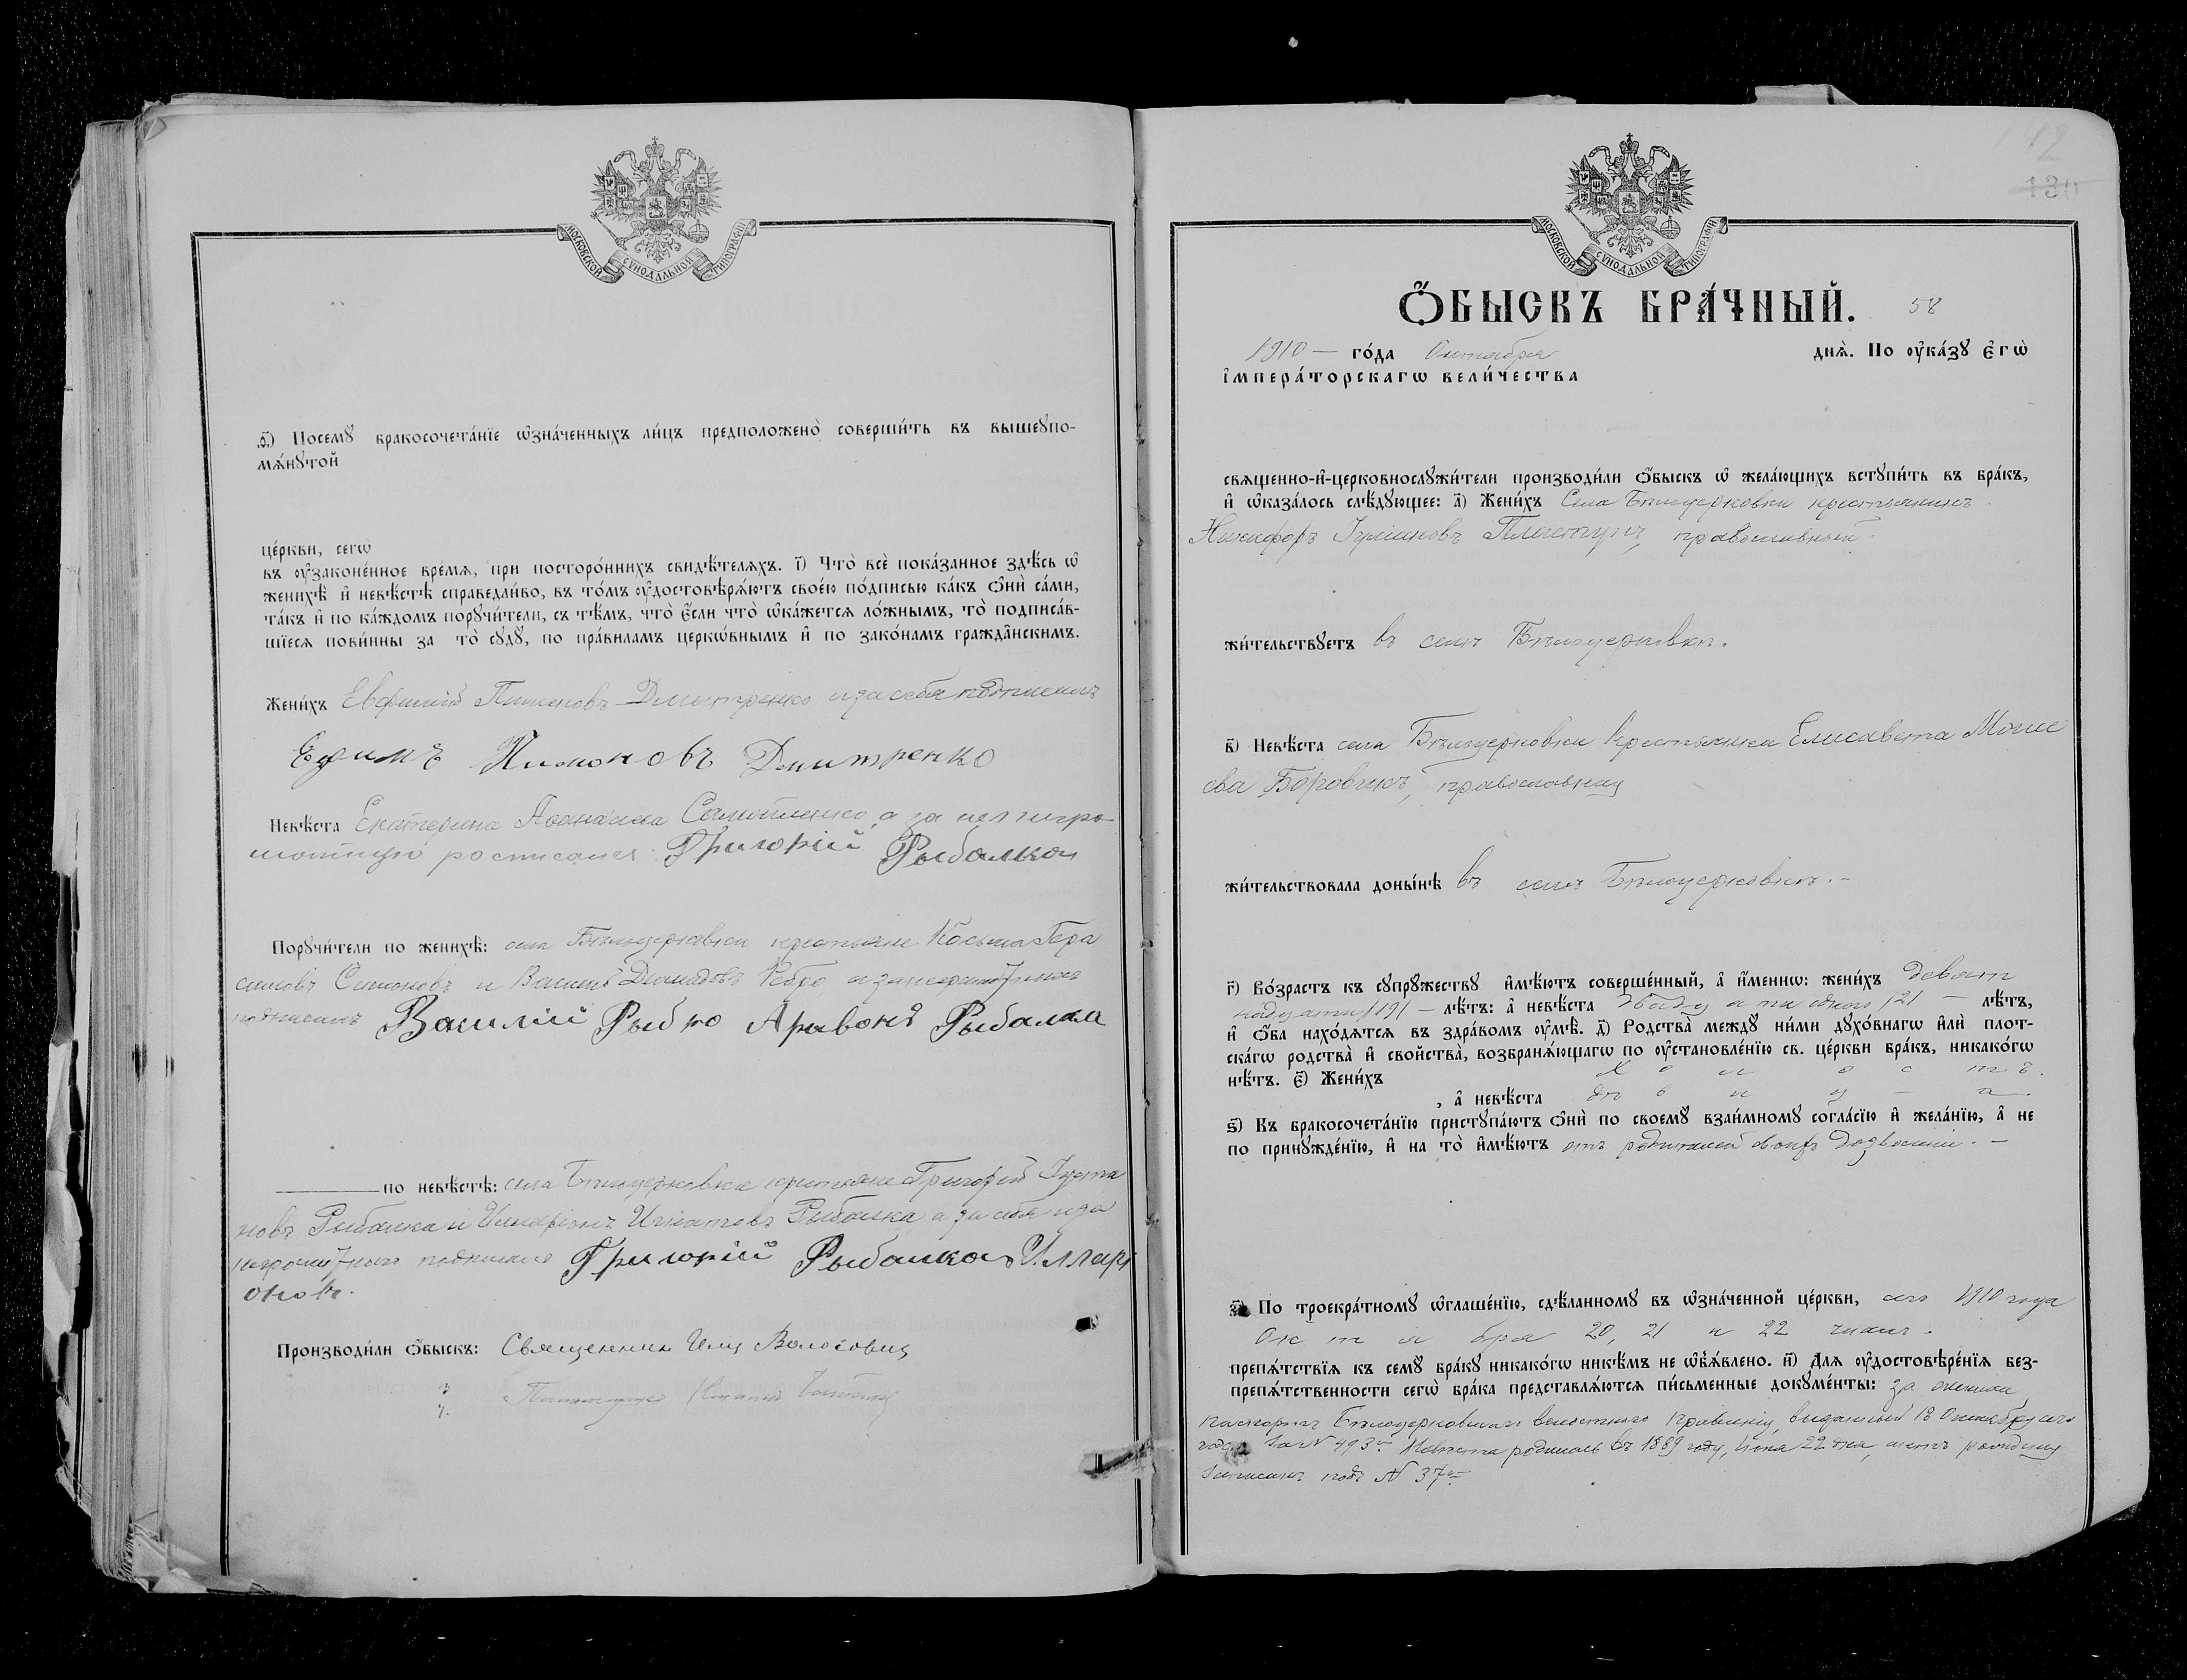 МОСКОВСКОЙ СѴНОДАЛЬНОЙ ТИПОГРАФІИ
ѳ҃) Посемꙋ̀ бракосочета́нїе ѡ҆зна́ченныхъ ли́цъ предположено̀ соверши́ть въ вышеꙋпо-
мѧ́нꙋтой
це́ркви, сегѡ̀
въ ᲂу҆законе́нное вре́мѧ, при посторо́ннихъ свидѣ́телѧхъ. і҃) Что̀ всѐ пока́занное здѣ́сь ѡ҆
женихѣ̀ и҆ невѣ́стѣ справедли́во, въ то́мъ ᲂу҆достовѣрѧ́ютъ свое́ю по́дписью ка́къ ѻ҆нѝ са́ми,
та́къ и҆ по ка́ждомъ порꙋчи́тели, съ тѣ́мъ, что̀ є҆́сли что̀ ѡ҆ка́жетсѧ ло́жнымъ, то̀ подписа́в-
шїесѧ пови́нны за то̀ сꙋдꙋ̀, по пра́виламъ церкѡ́внымъ и҆ по зако́намъ гражда̑нскимъ.
Жени́хъ Евфимій Пименовъ Дмитренко и за себя подписалъ
Ефимъ Пимоновъ Дмитренко
Невѣ́ста Екатерина Аѳанасіева Самойленко, а за нея негра-
мотную росписался Григорій Рыбалка
Порꙋчи́тели по женихѣ̀: села Бѣлоцерковки крестьяне Косьма Гера
симовъ Симоновъ и Василій Демидовъ а за неграмотныхъ
подписалъ Василій Рыбко Аривонъ Рыбалка
по невѣ́стѣ: села Бѣлоцерковки крестьяне Григорій Іусти
новъ Рыбалка и Иларіонъ Игнатовъ Рыбалка а за себя и за
неграмотнаго подписалъ Григорій Рыбалка Иллари
оновъ.
Производи́ли ѻ҆́быскъ: Священникъ Илія Волосовиц
МОСКОВСКОЙ СѴНОДАЛЬНОЙ ТИПОГРАФІИ
142
130
Ѻ҆́БЫСКЪ БРА́ЧНЫЙ. 58
1910 — го́да Октября днѧ̀. По ᲂу҆ка́зꙋ є҆гѡ̀
і҆мпера́торскагѡ вели́чества
свѧще́нно-и҆-церковнослꙋжи́тели производи́ли ѻ҆́быскъ ѡ҆ жела́ющихъ встꙋпи́ть въ бра́къ,
и҆ ѡ҆каза́лось слѣ́дꙋющее: а҃) Жени́хъ Села Бѣлоцерковки крестьянинъ
Никифоръ Пластунъ, православный.
жи́тельствꙋетъ въ селѣ Бѣлоцерковкѣ.
в҃) Невѣ́ста села Бѣлоцерковки крестьянка Елисавета Моисе
ева Боровикъ, православная
жи́тельствовала доны́нѣ въ селѣ Бѣлоцерковкѣ. —
г҃) Во́зрастъ къ сꙋпрꙋ́жествꙋ и҆мѣ́ютъ соверше́нный, а҆ и҆́меннѡ: жени́хъ девят
надцати /19/ — лѣ́тъ: а҆ невѣ́ста двадцати одного /21 — лѣ́тъ,
и҆ ѻ҆́ба нахо́дѧтсѧ въ здра́вомъ ᲂу҆мѣ̀. д҃) Родства̀ междꙋ ни́ми дꙋхо́внагѡ и҆лѝ плот-
ска́гѡ родства̀ и҆ свойства̀, возбранѧ́ющагѡ по ᲂу҆становле́нїю св. це́ркви бра́къ, никако́гѡ
нѣ́тъ. є҃) Жени́хъ Холостъ.
, а҆ невѣ́ста дѣвица.
ѕ҃) Къ бракосочета́нїю пристꙋпа́ютъ ѻ҆нѝ по своемꙋ̀ взаи́мномꙋ согла́сїю и҆ жела́нїю, а҆ не
по принꙋжде́нїю, и҆ на то̀ и҆мѣ́ютъ отъ родителей своихъ дозволеніе. —
з҃) По троекра́тномꙋ ѡ҆глаше́нїю, сдѣ́ланномꙋ въ ѡ҆зна́ченной це́ркви, сего 1910 года
Октября 20, 21 и 22 чиселъ.
препѧ́тствїѧ къ семꙋ̀ бра́кꙋ никако́гѡ никѣ́мъ не ѡ҆б̾ѧ́влено. и҃) Для ᲂу҆достовѣре́нїѧ без-
препѧ́тственности сегѡ̀ бра́ка представлѧ́ютсѧ пи́сьменные докꙋме́нты: за жениха
паспортъ Бѣлоцерковскаго волостного правленія, выданный 18 Октября сего
года За № 493м Невѣста родилась въ 1889 году, 22 дня, актъ рожденія
записанъ подъ № 37м